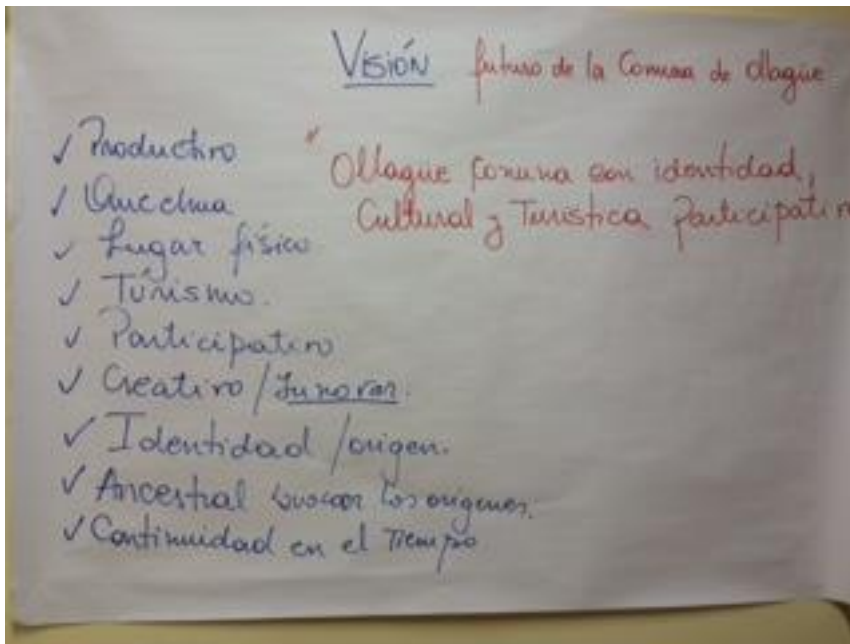 Visión futuro de la Comuna de Ollagüe
✓ Productivo
✓ Quechua
✓ Lugar físico.
✓ Turismo.
✓ Participativo
✓ Creativo / Innovar.
✓ Identidad / origen.
✓ Ancestral buscar los origenes.
✓ Continuidad en el Tiempo
" Ollague Comuna con identidad,
Cultural y Turística Participativa